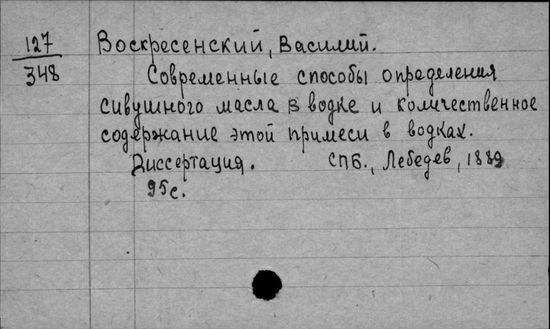 127
348
Воскресенский, Василий.
Современные способы определения
сивушного масла в водке и количественное
содержание этой примеси в водках.
Диссертация. СПБ., Лебедев, 1889
95 с.